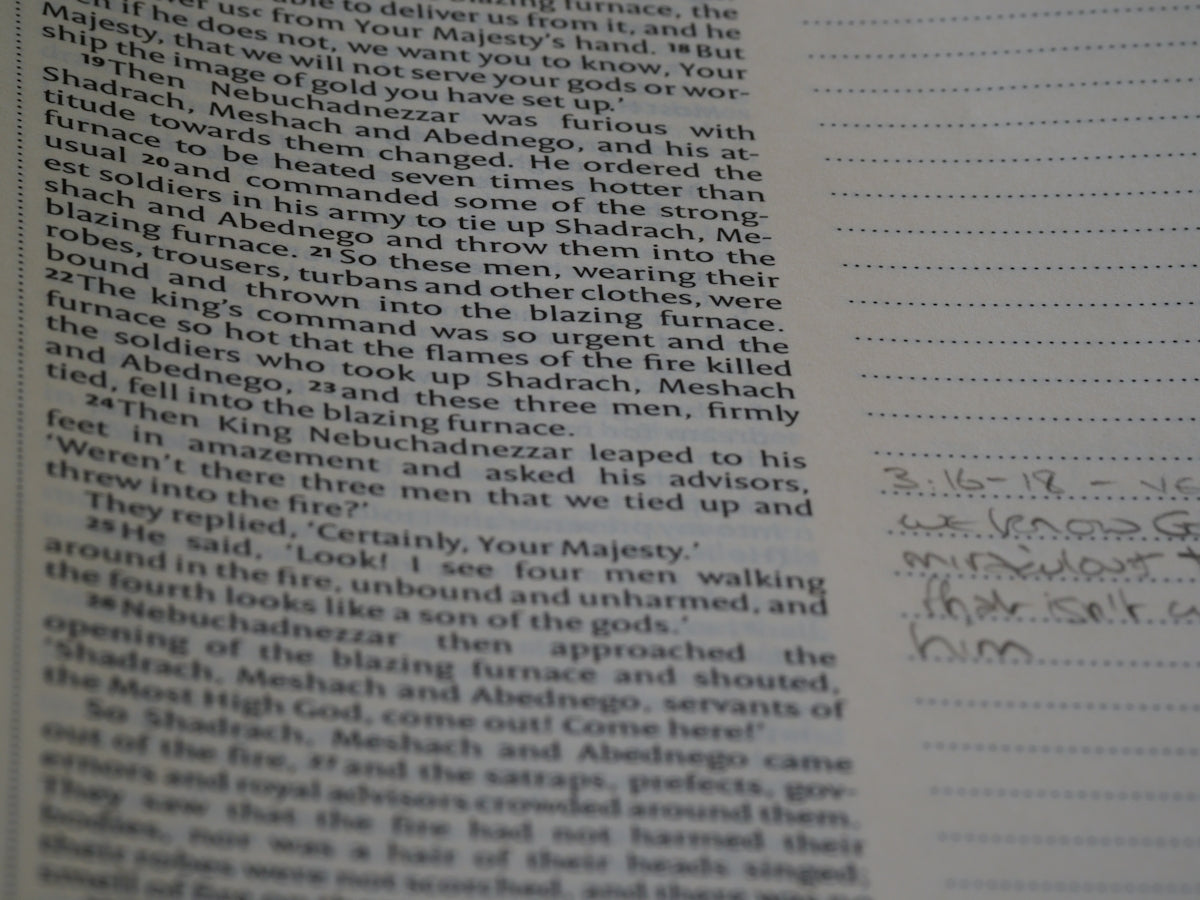 blazing furnace, the
able to deliver us from it, and he
us from Your Majesty's hand. 18 But
if he does not, we want you to know, Your
Majesty, that we will not serve your gods or wor-
ship the image of gold you have set up.'
19 Then Nebuchadnezzar was furious with
Shadrach, Meshach and Abednego, and his at-
titude towards them changed. He ordered the
furnace to be heated seven times hotter than
usual 20 and commanded some of the strong-
est soldiers in his army to tie up Shadrach, Me-
shach and Abednego and throw them into the
blazing furnace. 21 So these men, wearing their
robes, trousers, turbans and other clothes, were
bound and thrown into the blazing furnace.
22 The king's command was so urgent and the
furnace so hot that the flames of the fire killed
the soldiers who took up Shadrach, Meshach
and Abednego, 23 and these three men, firmly
tied, fell into the blazing furnace.
24 Then King Nebuchadnezzar leaped to his
feet in amazement and asked his advisors,
'Weren't there three men that we tied up and
threw into the fire?'
They replied, 'Certainly, Your Majesty.'
25 He said, 'Look! I see four men walking
around in the fire, unbound and unharmed, and
the fourth looks like a son of the gods.'
26 Nebuchadnezzar then approached the
opening of the blazing furnace and shouted,
'Shadrach, Meshach and Abednego, servants of
the Most High God, come out! Come here!'
So Shadrach, Meshach and Abednego came
out of the fire, 27 and the satraps, prefects, gov-
ernors and royal advisors crowded around them.
They saw that the fire had not harmed their
bodies, nor was a hair of their heads singed;
their robes were not scorched, and there was no
smell of fire on
3:16-18 -
we know
miraculous
that isn't
him